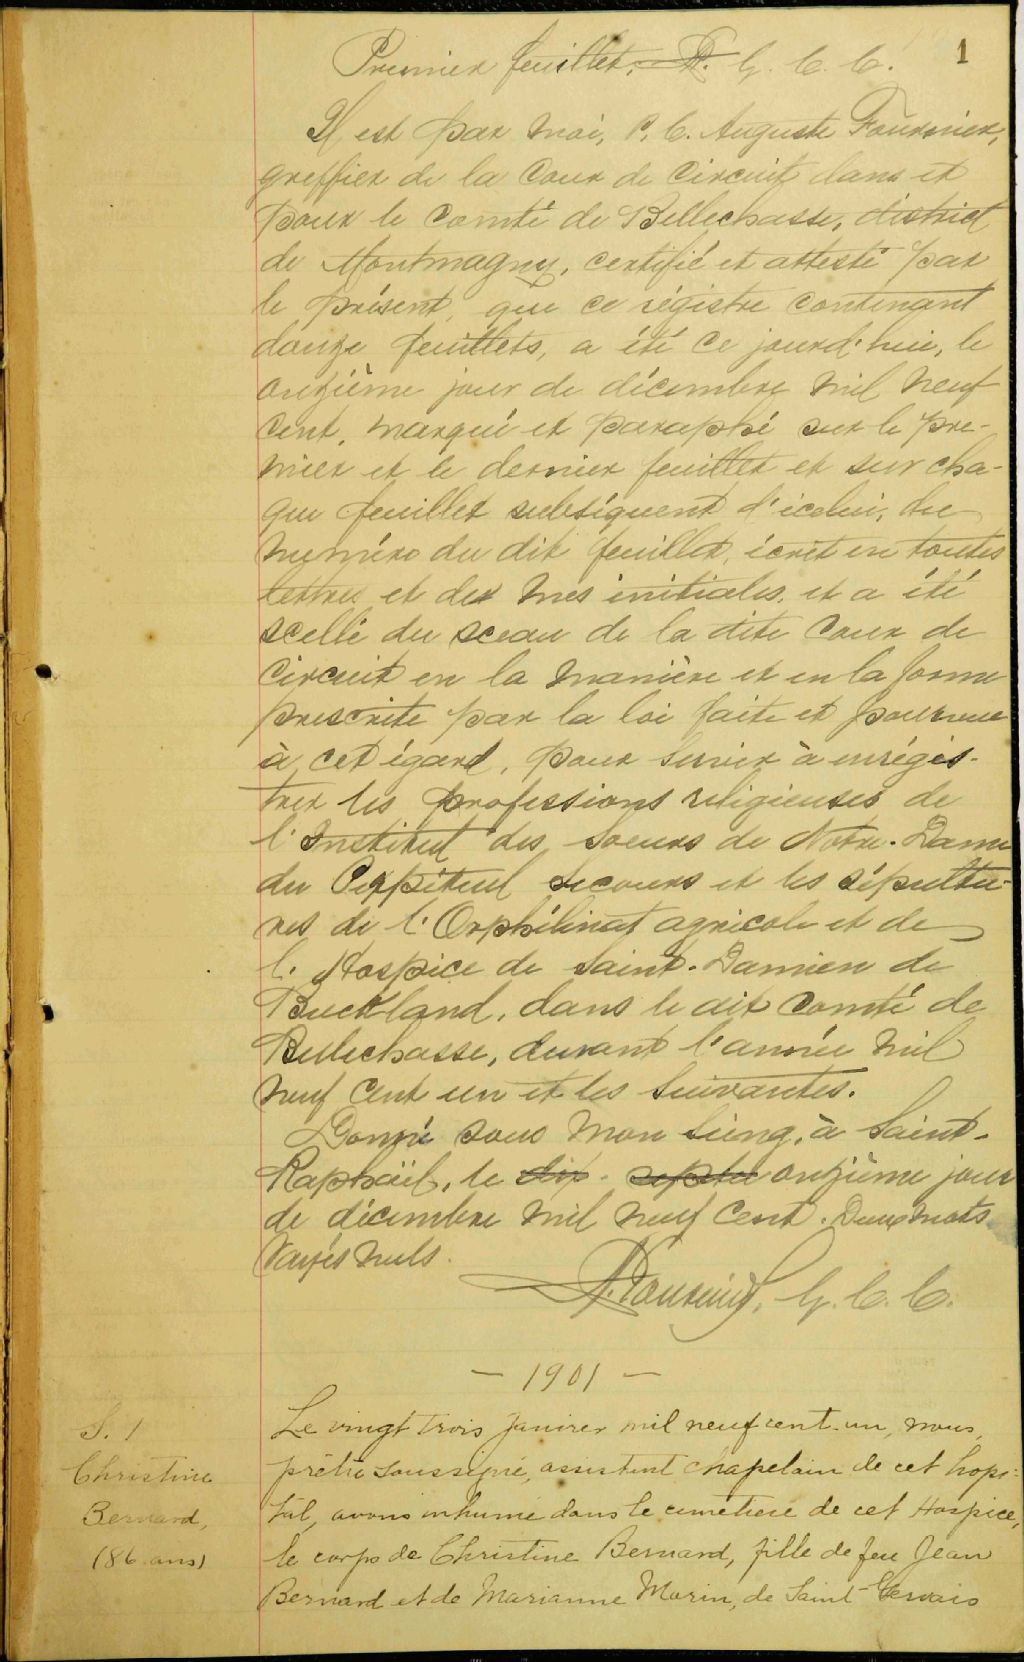 Premier feuillet. A. G. C. C.
1
Il est par moi, P. C. Auguste Fournier,
greffier de la Cour de Circuit dans et
pour le Comté de Bellechasse, district
de Montmagny, certifié et attesté par
le présent, que ce régistre contenant
douze feuillets, a été ce jourd'hui, le
onzième jour de décembre mil neuf
cent, marqué et paraphé sur le pre-
mier et le dernier feuillet et sur cha-
que feuillet subséquent d'icelui, du
numéro du dit feuillet, écrit en toutes
lettres et des mes initiales, et a été
scellé du sceau de la dite Cour de
Circuit en la manière et en la forme
prescrite par la loi faite et pourvue
à cet égard, pour servir à enrégis-
trer les professions religieuses de
l'Institut des Soeurs de Notre-Dame
du Perpétuel Secours et les sépultu-
res de l'Orphélinat agricole et de
l'Hospice de Saint-Damien de
Buckland, dans le dit Comté de
Bellechasse, durant l'année mil
neuf cent un et les suivantes.
Donné sous mon seing, à Saint-
Raphaël, le dix- septiè onzième jour
de décembre mil neuf cent. Deux mots
rayés nuls.
A. Fournier, G. C. C.
— 1901 —
S. 1
Christine
Bernard,
(86 ans)
Le vingt trois Janvier mil neuf cent-un, nous,
prêtre soussigné, assistant chapelain de cet hopi-
tal, avons inhumé dans le cimetière de cet Hospice,
le corps de Christine Bernard, fille de feu Jean
Bernard et de Marianne Morin, de Saint-Gervais